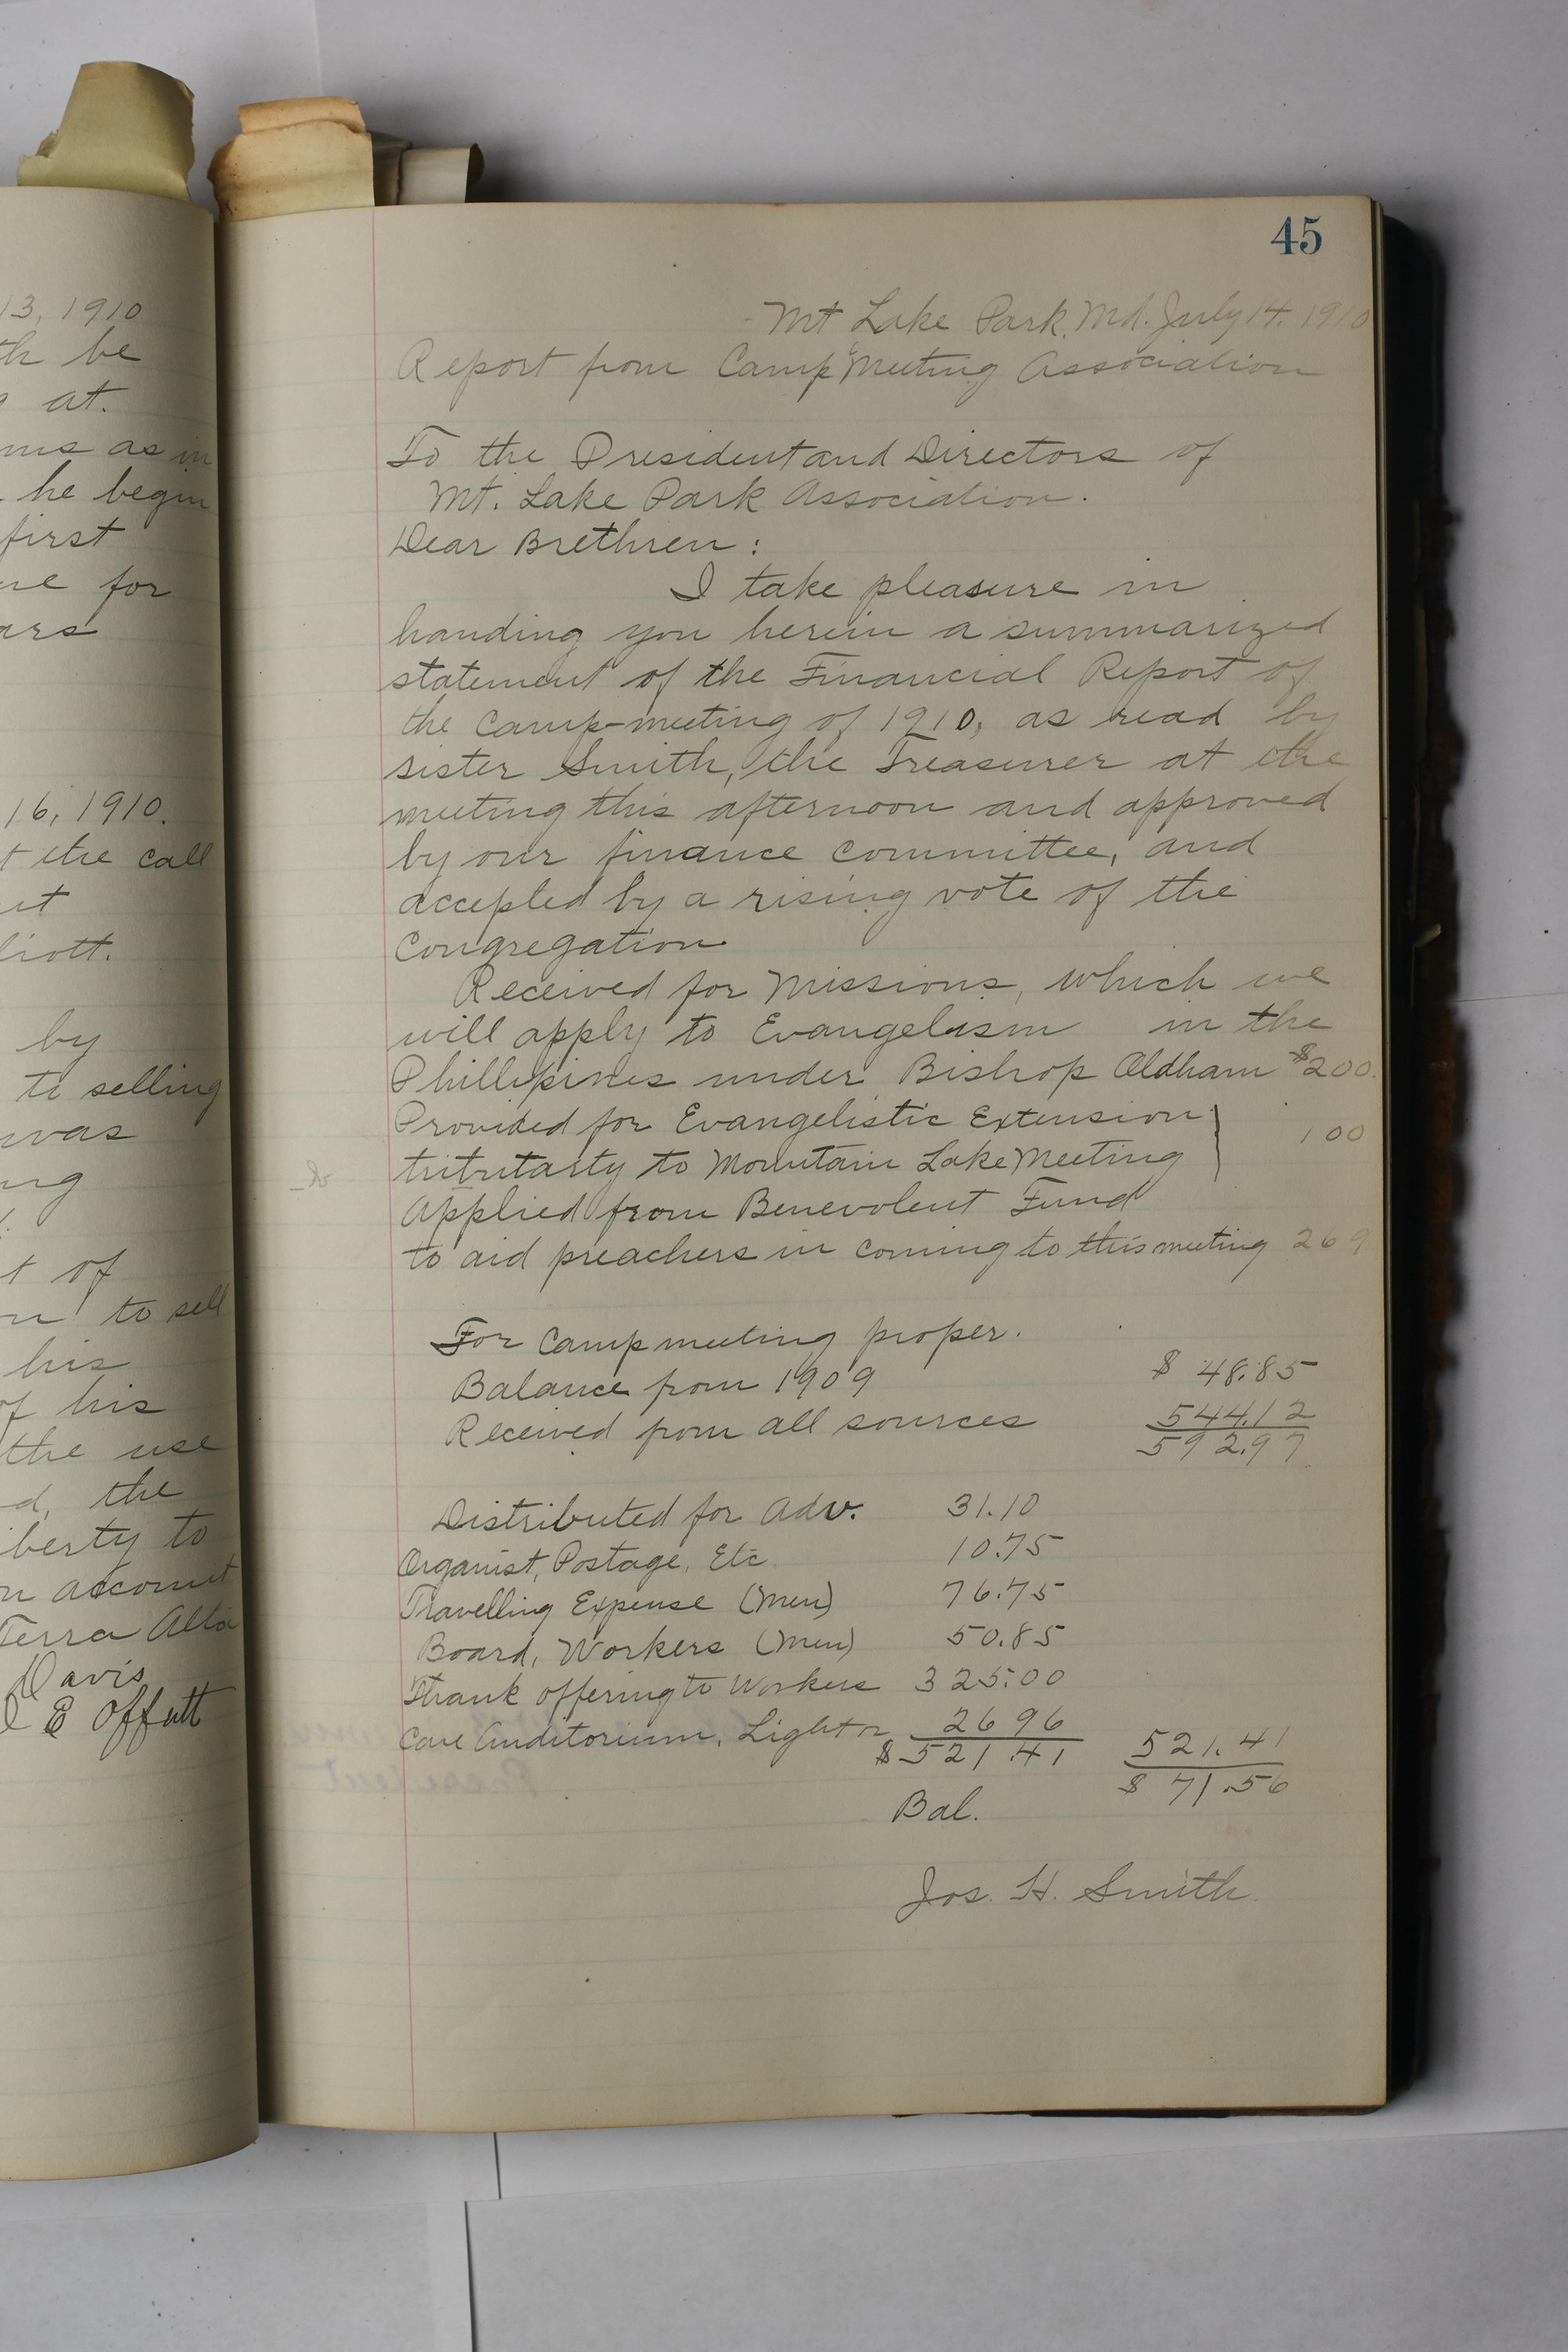 13, 1910
th be
at.
ms as in
he begin
first
for
ars
16, 1910.
t the call
liott.
by
to selling
was
ng
t of
to sell
his
of his
the use
d, the
iberty to
n account
Terra Alta
Davis
E Offutt
45
Mt Lake Park, Md. July 14. 1910
Report from Camp Meeting Association
To the President and Directors of
Mt. Lake Park Association.
Dear Brethren:
I take pleasure in
handing you herein a summarized
statement of the Financial Report of
the Camp-meeting of 1910, as read by
sister Smith, the Treasurer at the
meeting this afternoon and approved
by our finance committee, and
accepted by a rising vote of the
Congregation
Received for Missions, which we
will apply to Evangelism in the
Phillipines under Bishop Oldham $200.
Provided for Evangelistic Extension
100
tributarty to Mountain Lake Meeting
Applied from Benevolent Fund
to aid preachers in coming to this meeting 269
For Camp meeting proper.
Balance from 1909 $ 48.85
Received from all sources 544.12
592.97
Distributed for Adv. 31.10
Organist, Postage, Etc. 10.75
Travelling Expense (Men) 76.75
Board, Workers (Men) 50.85
Thank offering to Workers 325.00
Care Auditorium, Light 26 96
$521.41 521.41
$ 71.56
Bal.
Jos. H. Smith.